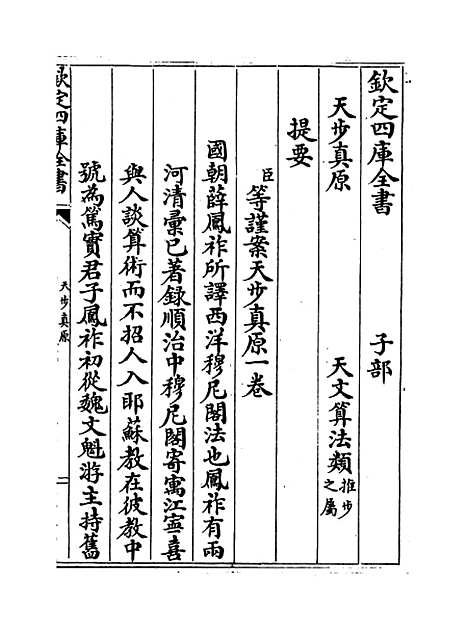 欽定四庫全書　子部
天步真原　天文算法類推步之屬
提要
臣等謹案天步真原一卷
國朝薛鳳祚所譯西洋穆尼閣法也鳳祚有兩
河清彚已著録順治中穆尼閣寄寓江寧喜
與人談算術而不招人入耶蘇教在彼教中
號為篤實君子鳳祚初從魏文魁游主持舊
欽定四庫全書
天步真原
二